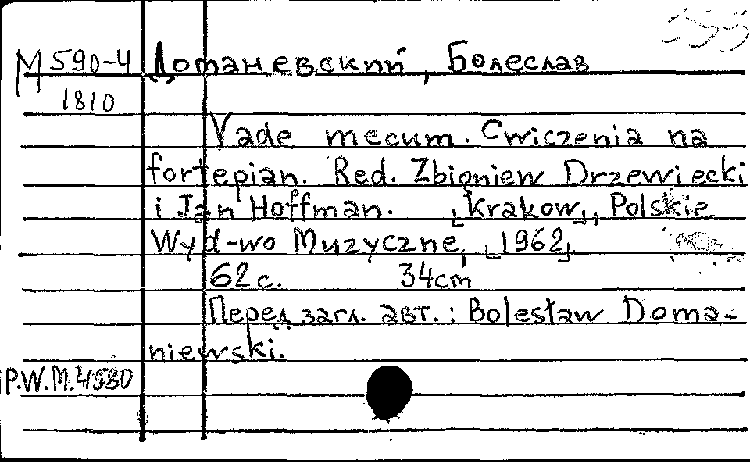 М 590-4 Доманевский, Болеслав
1810
Vade mecum. Cwiczenia na
fortepian. Red. Zbigniew Drzewiecki
i Jan Hoffman. [Krakow], Polskie
Wyd-wo Muzyczne, [1962]
62 с. 34cm
Перед загл. авт.: Bolesław Doma-
niewski.
P.W.M. 4580